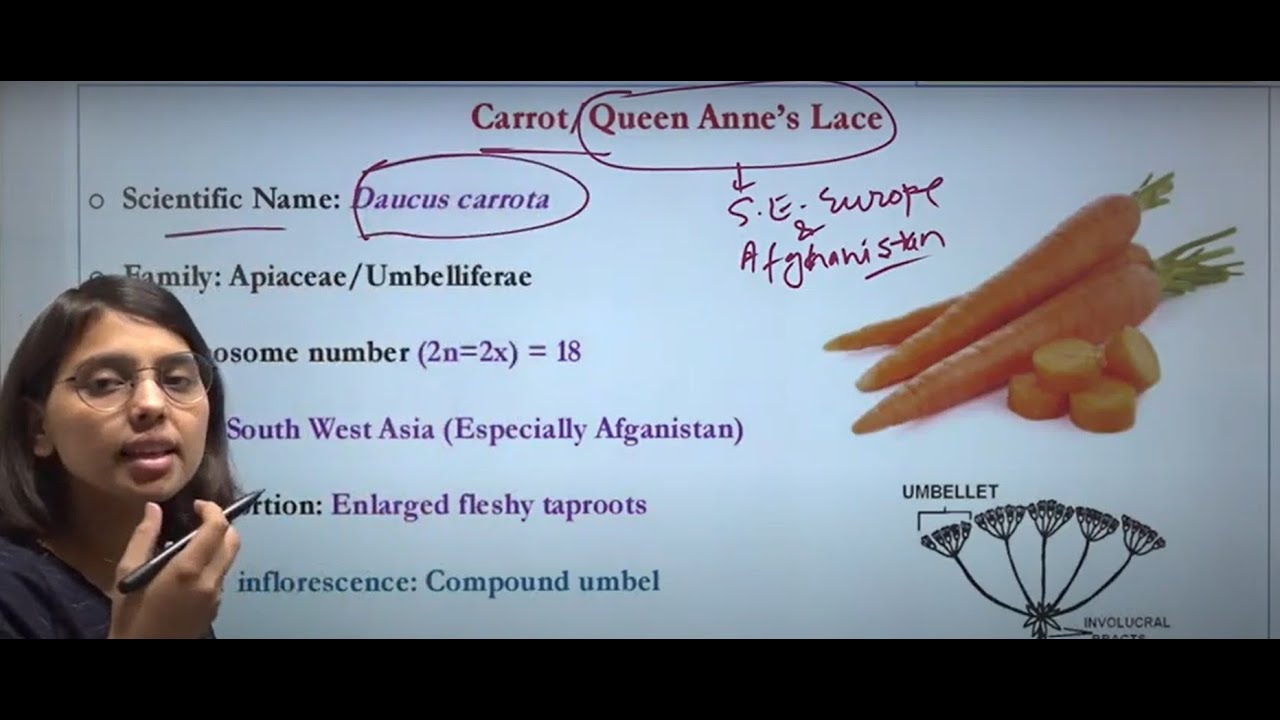 Carrot/Queen Anne's Lace
S.E. Europe
&
Afghanistan
○ Scientific Name: Daucus carrota
○ Family: Apiaceae/Umbelliferae
osome number (2n=2x) = 18
South West Asia (Especially Afganistan)
rtion: Enlarged fleshy taproots
inflorescence: Compound umbel
UMBELLET
INVOLUCRAL
BRACTS